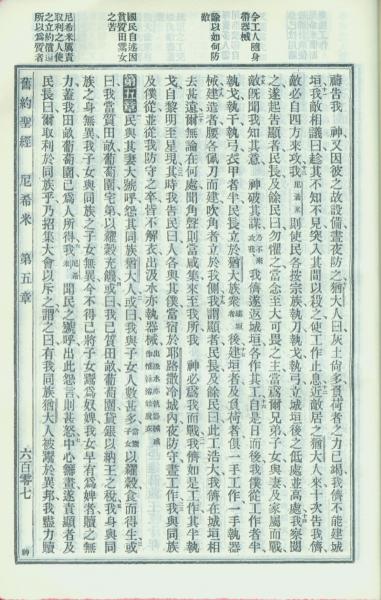 令工人隨身
帶器械
諭以如何防
敵
國民自述因
貧質田鬻女
之苦
尼希米厲責
取利之人使
之立約償還
所以為質者
禱告我 神又因彼之故設備晝夜防之猶大人曰灰土尚多負荷者之力已竭我儕不能建城
垣我敵相議曰趁其不知不見突入其間以殺之使工作止息近敵居之猶大人來十次告我儕
敵必自四方來攻我尼希米則使民各按宗族執刀執戈執弓立城垣後之低處並高處我察閱
之遂起告顯者民長及餘民曰勿懼之當念至大可畏之主當為爾兄弟子女與妻及家屬而戰
敵既聞我知其意 神破其謀我儕遂返城垣各作其工自是日而後我僕從工作者半
執戈執干執弓衣甲者半民長立於猶大族眾後建垣者及負荷者俱一手工作一手執器
械建造者腰各佩刀而建吹角者立我側我謂顯者民長及餘民曰此工浩大我儕在城垣相
去甚遠爾無論在何處聞角聲則當咸集來至我所我 神必為我而戰我儕如是工作其半執
戈自黎明至星現其時我告民曰人各與其僕當宿於耶路撒冷城內夜防守晝工作我與同族
及僕從並從我防守之卒皆不解衣出汲水亦執器械
第五章 民與其妻大號呼怨其同族猶大人或曰我與子女人數甚多當以糴穀食而得生或
曰我當質田畝葡萄園宅第以糴穀充饑或曰我已質田畝葡萄園貸銀以納王之稅我身與同
族之身無異我子女與同族之子女無異今不得已將子女鬻為奴婢我女早有為婢者贖之無
力蓋我田畝葡萄園已為人所得我聞民之號呼出此怨言則甚怒中心籌畫遂責顯者及
民長曰爾取利於同族乎乃招集大會以斥之謂之曰有我同族猶大人被鬻於異邦我盡力贖
舊約聖經 尼希米 第五章 六百零七